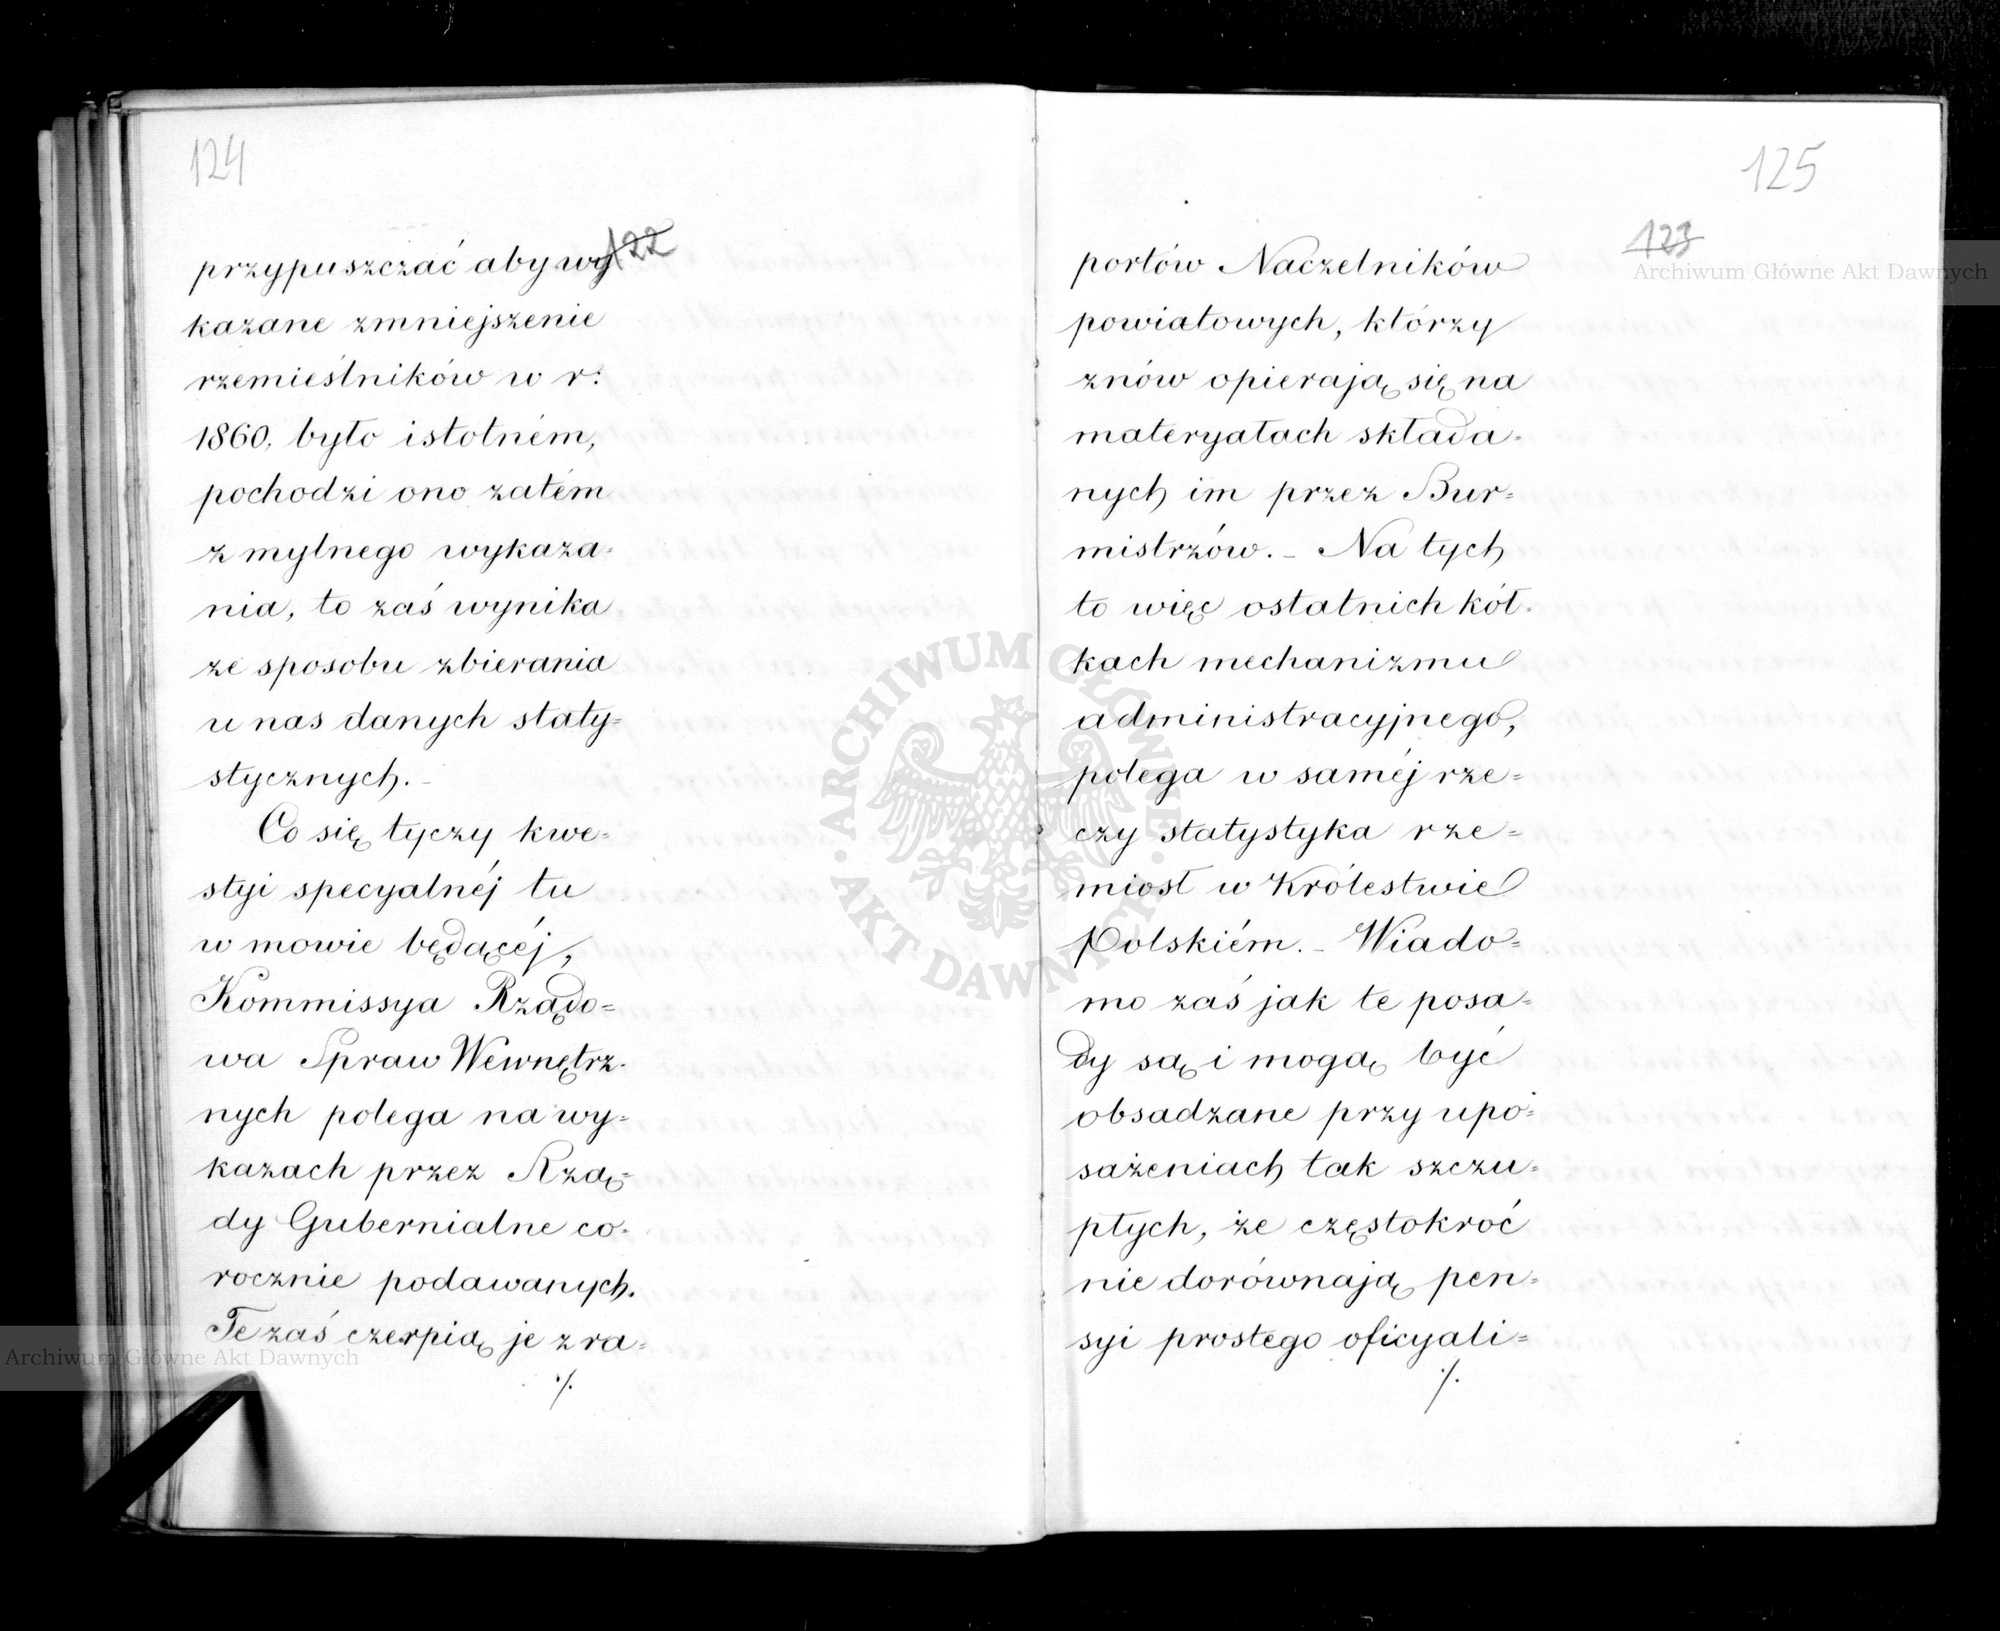 124
122
przypuszczać aby wy
kazane zmniejszenie
rzemieślników w r.
1860, było istotném,
pochodzi ono zatém
z mylnego wykaza=
nia, to zaś wynika
ze sposobu zbierania
u nas danych staty=
stycznych. –
Co się tyczy kwe=
styi specyalnéj tu
w mowie będącéj,
Kommissya Rządo=
wa Spraw Wewnętrz-
nych polega na wy=
kazach przez Rzą=
dy Gubernialne co-
rocznie podawanych.
Te zaś czerpią je z ra=
./.
125
123
portów Naczelników
powiatowych, którzy
znów opierają się na
materyałach składa=
nych im przez Bur=
mistrzów. – Na tych
to więc ostatnich kół-
kach mechanizmu
administracyjnego,
polega w saméj rze=
czy statystyka rze=
miosł w Królestwie
Polskiém. – Wiado=
mo zaś jak te posa=
dy są i mogą być
obsadzane przy upo=
sażeniach tak szczu=
płych, że częstokroć
nie dorównają pen=
syi prostego oficyali=
./.
Archiwum Główne Akt Dawnych
ARCHIWUM GŁÓWNE · AKT DAWNYCH ·
Archiwum Główne Akt Dawnych